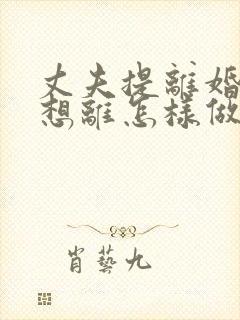 丈夫提離婚
想離怎樣做
肖藝九